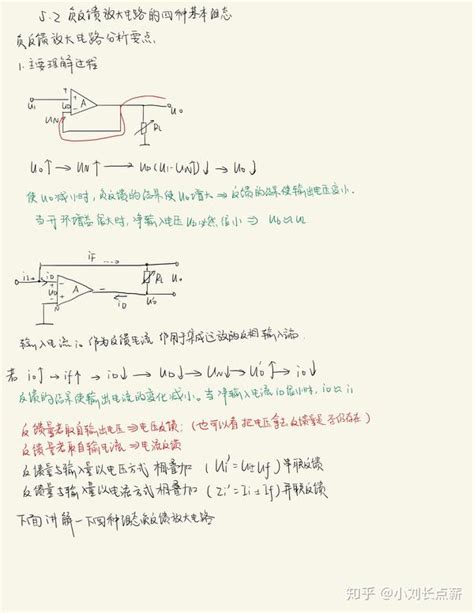 5.2 负反馈放大电路的四种基本组态
负反馈放大电路分析要点.
1.主要理解过程
ui
UN
A
uo
RL
uo↑→UN↑→uo(ui-UN)↓→uo↓
使uo减小时,负反馈的结果使uo增大⇒反馈的结果使输出电压变小.
当开环增益很大时,净输入电压
iF
A
RL
uo
io
输入电流io作为反馈电流 作用于集成运放的反相输入端
若 io↑→if↑→iD↓→UD↓→UN↓→Uo'↑→io↓
反馈的结果使输出电流的变化减小。当净输入电流iD很小时,
反馈量若取自输出电压⇒电压反馈.(也可以看把电压
反馈量若取自输出电流⇒电流反馈
反馈量与输入量以电压方式相叠加(Ui'=Ui±Uf)串联反馈
反馈量与输入量以电流方式相叠加(Ii'=Ii±If)并联反馈
下面讲解一下四种组态负反馈放大电路
知乎 @小刘长点薪